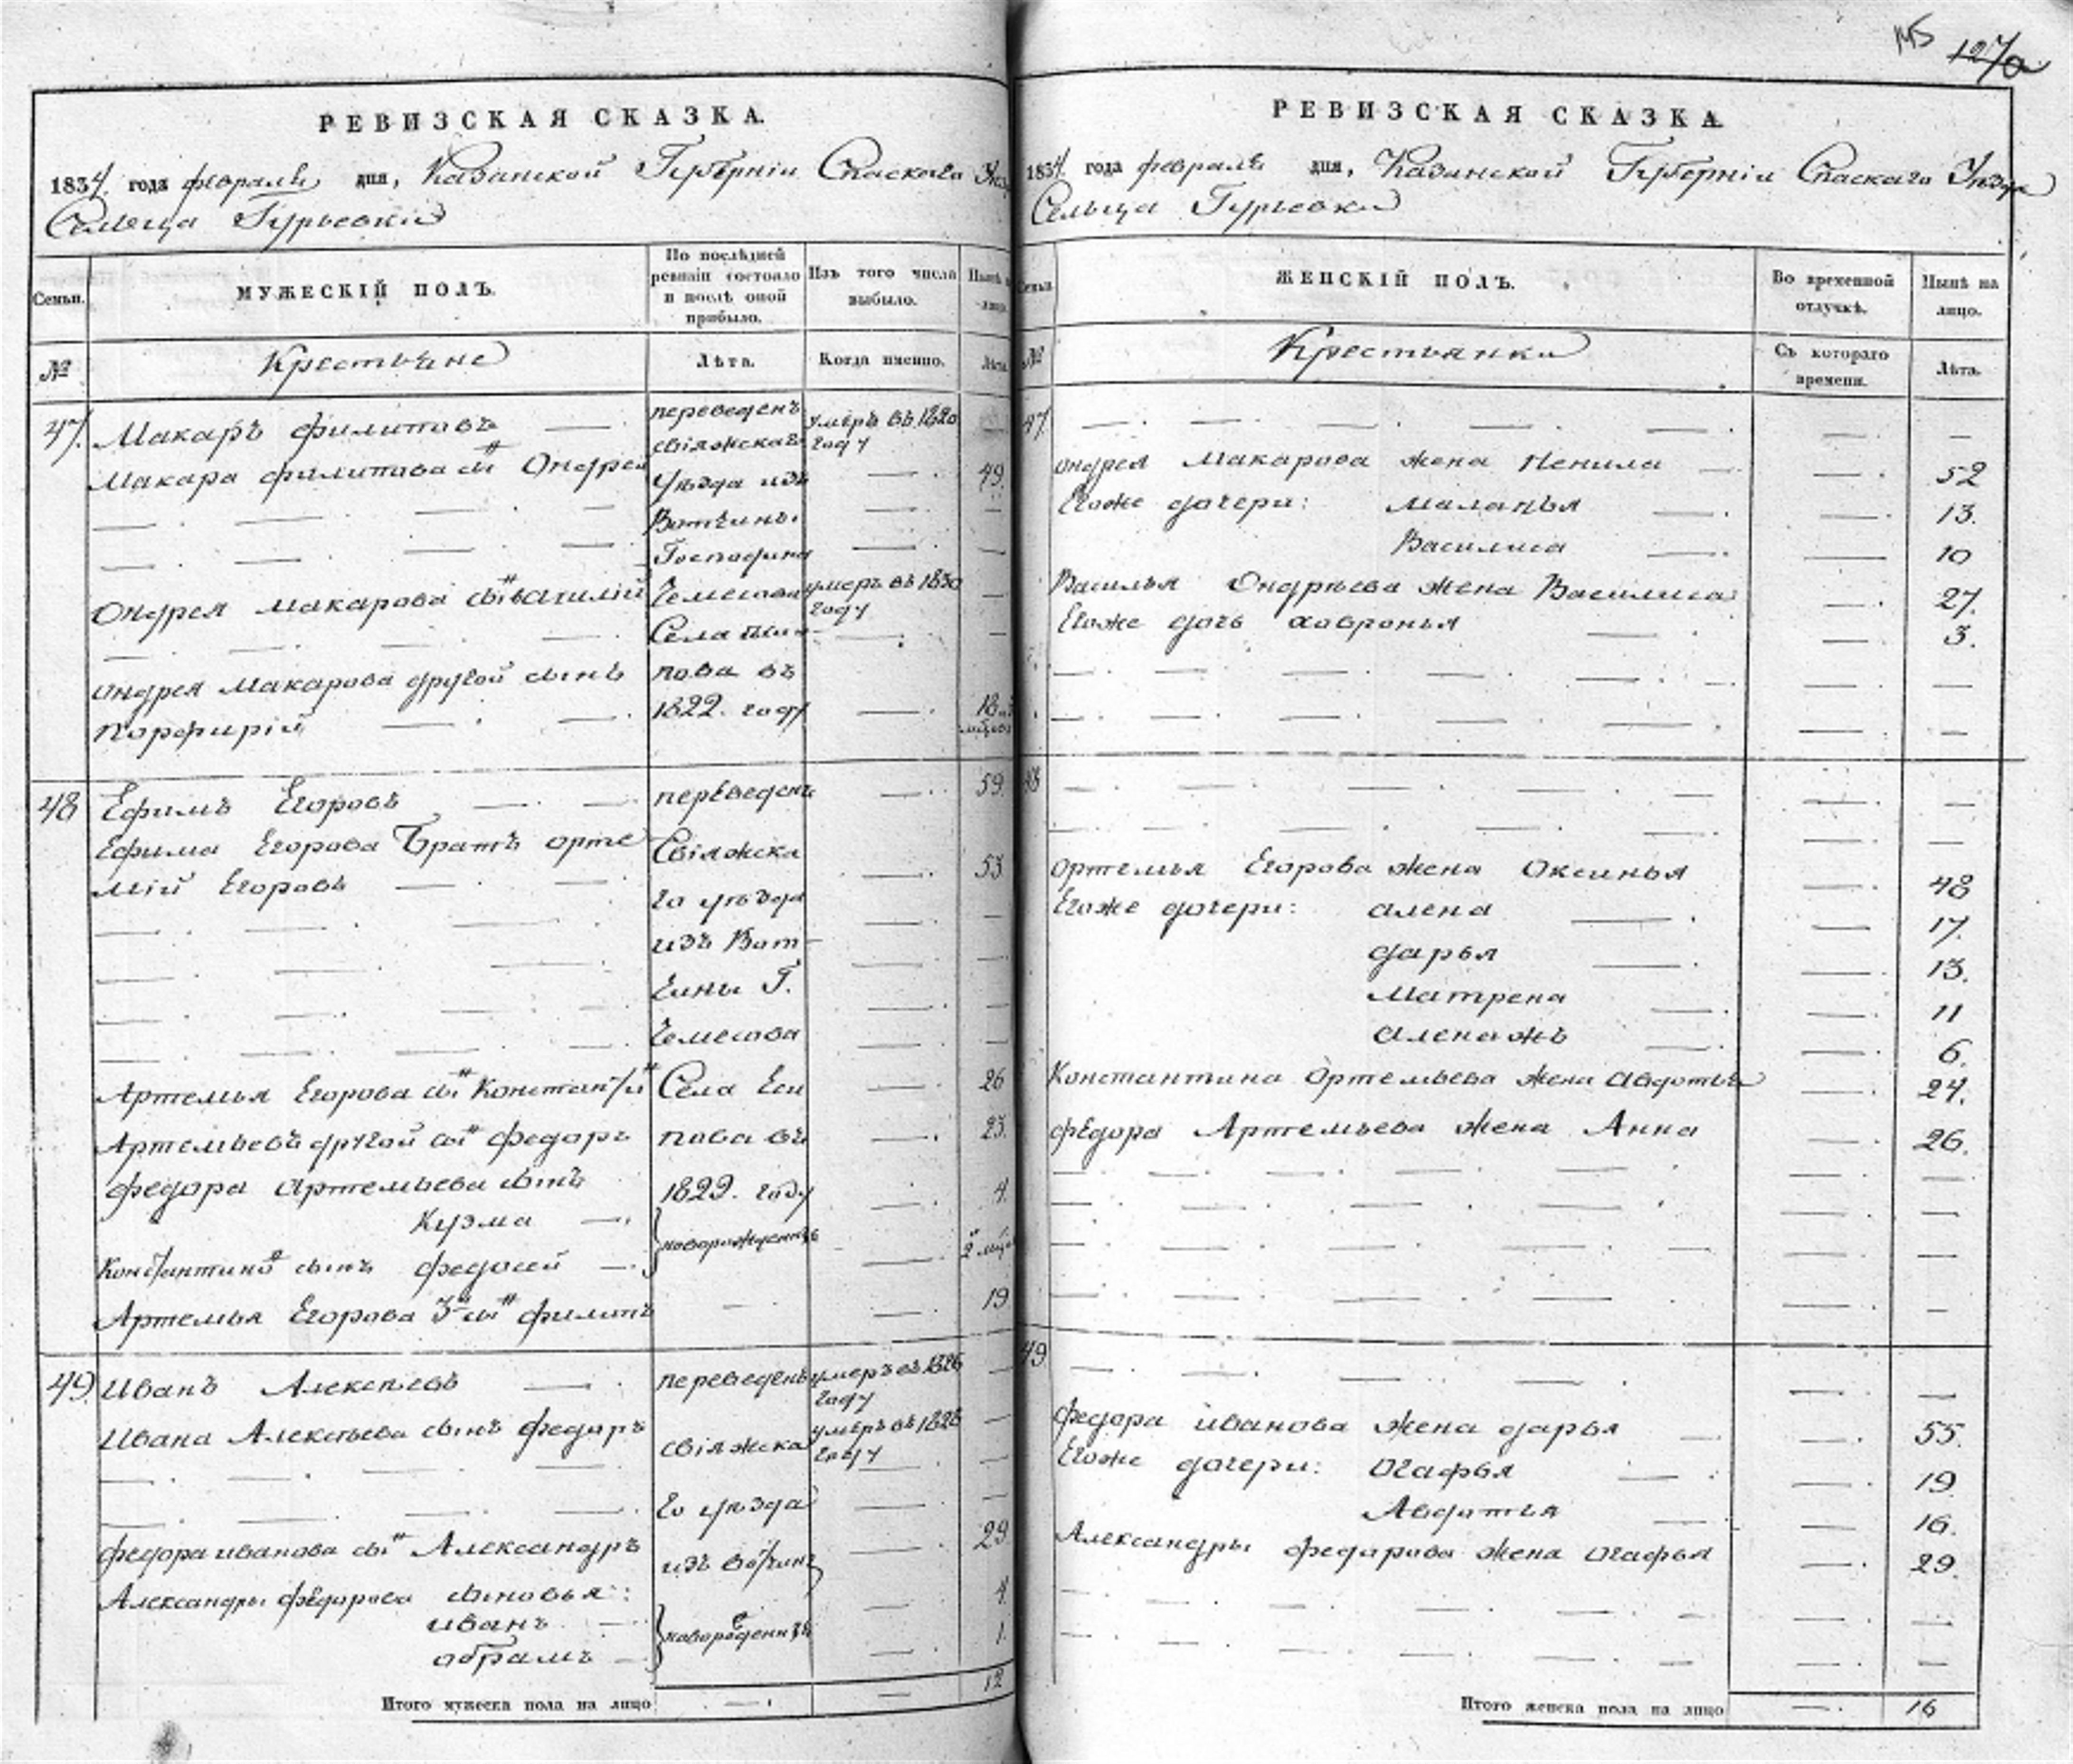 145 1270
РЕВИЗСКАЯ СКАЗКА.
1834. года февраля дня, Казанской Губерніи Спаскаго
Сельца Гурьевки
Семьи. МУЖЕСКІЙ ПОЛЪ. По послѣдней ревизіи состояло и послѣ оной прибыло. Изъ того числа выбыло. Нынѣ на лицо.
№ Крестьяне Лѣта. Когда именно. Лѣта.
47. Макаръ филиповъ переведенъ умеръ въ 1820
свіяжскаго году
Макара филипова сынъ Ондрей Уѣзда изъ 49.
Вотчины
Господина
Ондрея макарова сынъ василій Чемесова умеръ въ 1830
году
Села
ондрея макарова другой сынъ пова въ
порфирій 1822. году 18
48 Ефимъ Егоровъ переведенъ 59.
Ефима Егорова Братъ орте Свіяжска 53.
мій Егоровъ го уѣзда
изъ Вот
чины Г.
Чемесова
Артемья Егорова сынъ Констан/и Села Еси 26
Артемьевъ другой сынъ федоръ пова въ 23.
федора артемьева сынъ 1829. году 4.
Кузма новорожденны
Константина сынъ федосей 2
Артемья Егорова 3й сынъ филипъ 19
49. Иванъ Алексѣевъ переведенъ умеръ въ 1826
году
Ивана Алексѣева сынъ федоръ свіяжска умеръ въ 1828
году
го уѣзда
федора иванова сынъ Александръ изъ вотчин 29
Александры федорова сыновья: 4
иванъ новорожденны 1.
обрамъ
12
Итого мужеска пола на лицо
РЕВИЗСКАЯ СКАЗКА.
1834. года февраля дня, Казанской Губерніи Спаскаго Уѣзда
Сельца Гурьевки
Семьи. ЖЕНСКІЙ ПОЛЪ. Во временной отлучкѣ. Нынѣ на лицо.
№ Крестьянки Съ котораго времени. Лѣта.
47.
ондрея Макарова жена Ненила 52
Егоже дочери: маланья 13.
Василиса 10
Василья Ондрѣева жена Василиса 27.
Егоже дочь ховронья 3.
48
ортемья Егорова жена Оксинья 48
Егоже дочери: алена 17.
дарья 13.
матрена 11
алена жъ 6.
Константина Ортемьева жена авдотья 24.
федора Артемьева жена Анна 26.
49
федора иванова жена дарья 55.
Егоже дочери: огафья 19
Авдотья 16.
Александры федорова жена огафья 29.
Итого женска пола на лицо 16